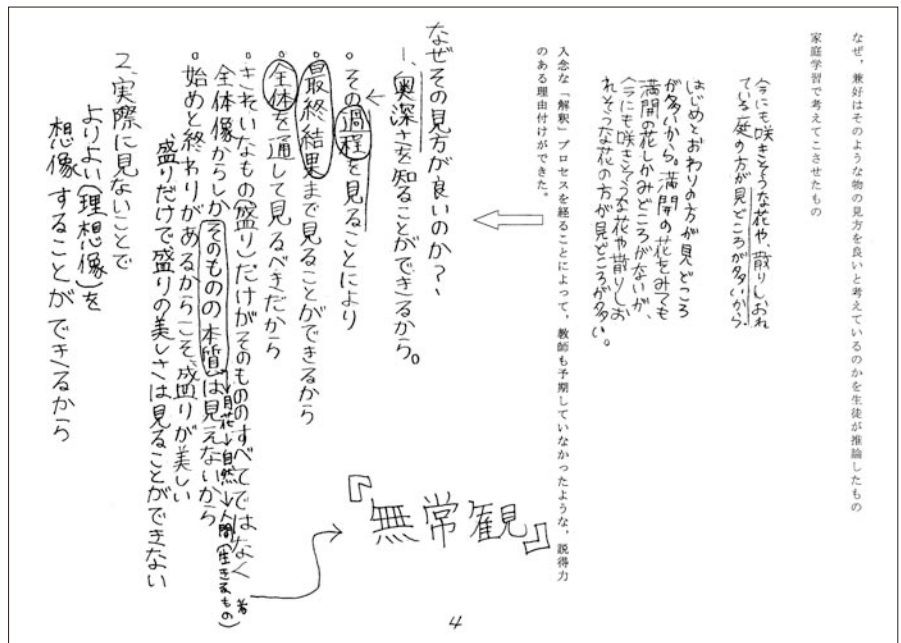 なぜ，兼好はそのような物の見方を良いと考えているのかを生徒が推論したもの
家庭学習で考えてこさせたもの
今にも咲きそうな花や、散りしおれ
ている庭の方が見どころが多いから
はじめとおわりの方が見どころ
が多いから。満開の花をみても
満開の花しかみどころがないが、
今にも咲きそうな花や散りしお
れそうな花の方が見どころが多い。
入念な「解釈」プロセスを経ることによって，教師も予期していなかったような，説得力
のある理由付けができた。
なぜその見方が良いのか？、
1、奥深さを知ることができるから。
。その過程を見ることにより
。最終結果まで見ることができるから
。全体を通して見るべきだから
。きれいなもの(盛り)だけがそのもののすべてではなく
全体像からしかそのものの本質は見えないから
→月花→自然→人間(生きるもの)
。始めと終わりがあるからこそ盛りが美しい
盛りだけで盛りの美しさは見ることができない
2、実際に見ないことで
よりよい(理想像)を
想像することができるから
『無常観』
4